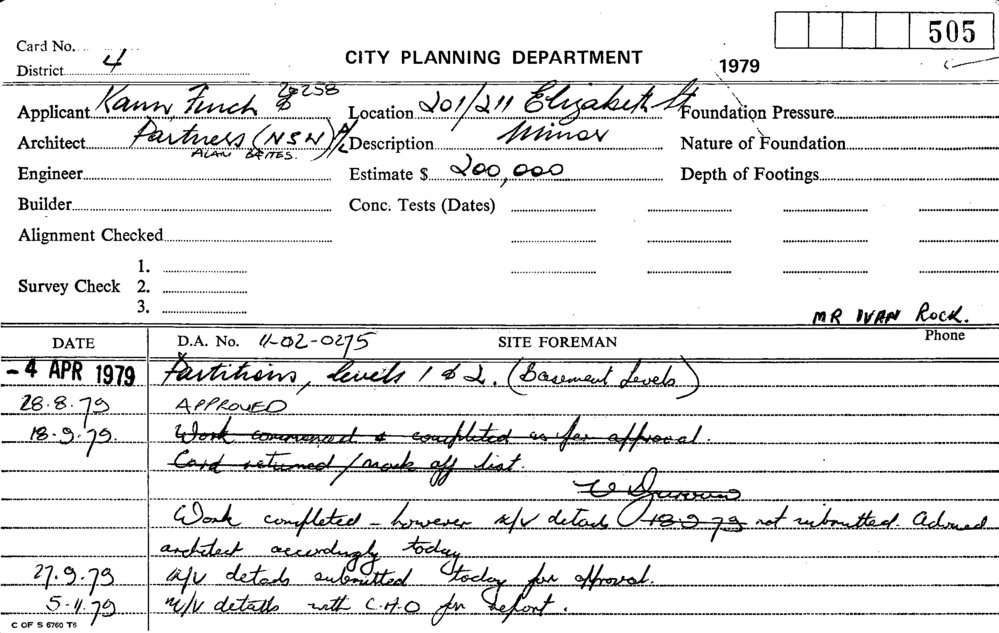 505
Card No.
CITY PLANNING DEPARTMENT
District 4
1979
Applicant Kann, Finch & 29258 Location 201/211 Elizabeth St Foundation Pressure
Architect Partners (NSW) P/L Description Minor Nature of Foundation
ALAN BATES.
Engineer Estimate $ 200,000 Depth of Footings
Builder Conc. Tests (Dates)
Alignment Checked
1.
Survey Check 2.
3.
MR IVAN ROCK.
DATE D.A. No. 11-02-0275 SITE FOREMAN Phone
- 4 APR 1979 Partitions, Levels 1 & 2. (Basement Levels)
28.8.79 APPROVED
18.9.79. Work commenced & completed as per approval.
Card returned / mark off list.
Work completed - however m/v details 18.9.79 not submitted. Advised
architect accordingly today
27.9.79 m/v details submitted today for approval.
5.11.79 m/v details with C.H.O for report.
C OF S 6760 T6